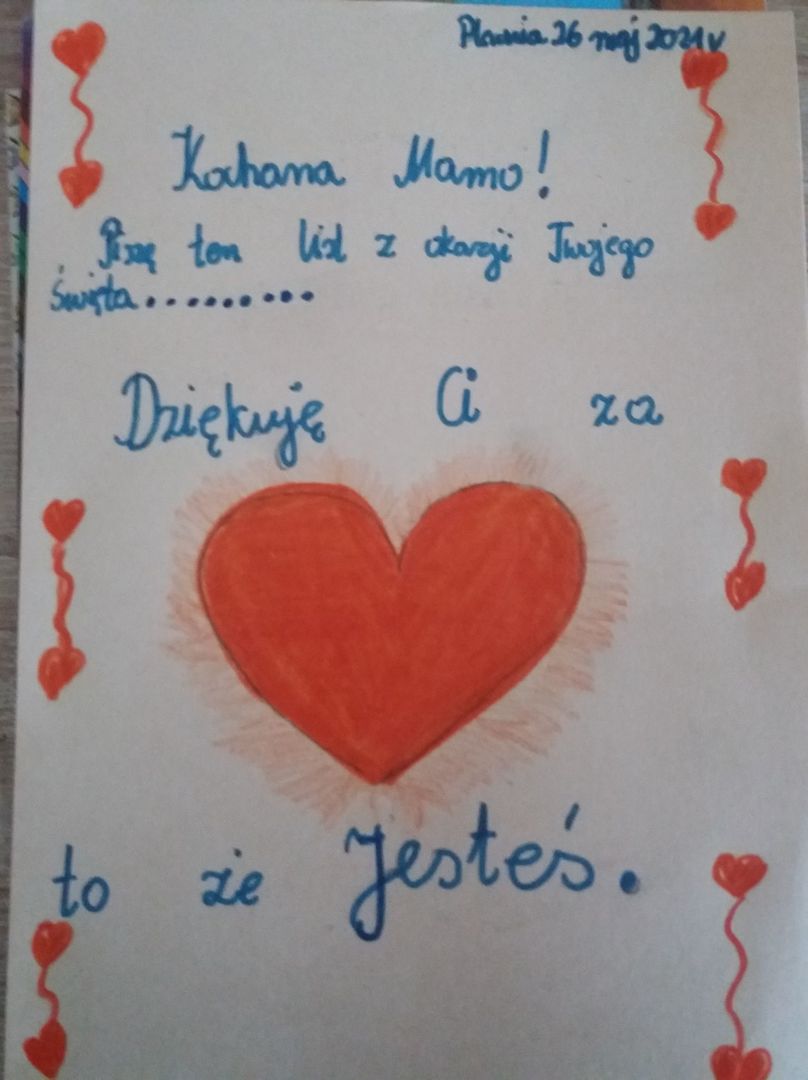 Pławnia 26 maj 2021r
Kochana Mamo!
Piszę ten list z okazji Twojego
święta.........
Dziękuję Ci za
to że Jesteś.